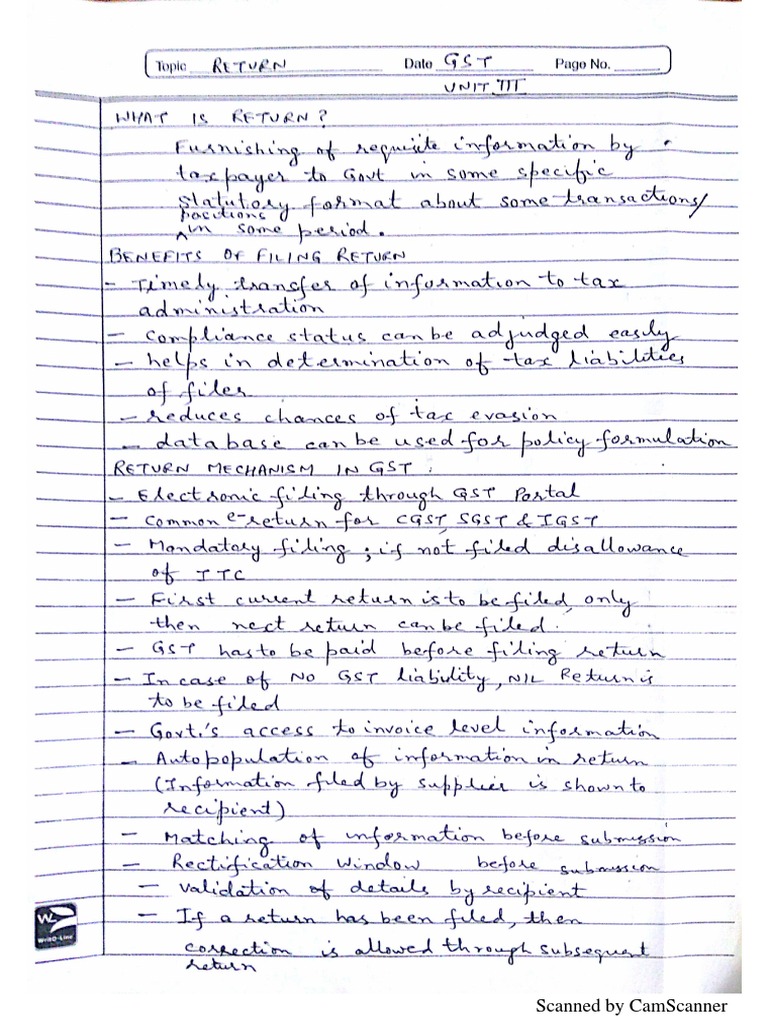 Topic RETURN Date GST Page No.
UNIT III
WHAT IS RETURN?
Furnishing of requisite information by
taxpayer to Govt in some specific
statutory format about some transactions/
positions
^ in some period.
BENEFITS OF FILING RETURN
- Timely transfer of information to tax
administration
- compliance status can be adjudged easily
- helps in determination of tax liabilities
of filer
- reduces chances of tax evasion
- database can be used for policy formulation
RETURN MECHANISM IN GST :
- Electronic filing through GST Portal
- common e-return for CGST, SGST & IGST
- Mandatory filing ; if not filed disallowance
of ITC
- First current return is to be filed, only
then next return can be filed.
- GST has to be paid before filing return
- In case of NO GST liability, NIL Return is
to be filed
- Govt.'s access to invoice level information
- Autopopulation of information in return
(Information filed by supplier is shown to
recipient)
- Matching of information before submission
- Rectification window before submission
- validation of details by recipient
- If a return has been filed, then
correction is allowed through subsequent
return
WritO-Line
Scanned by CamScanner